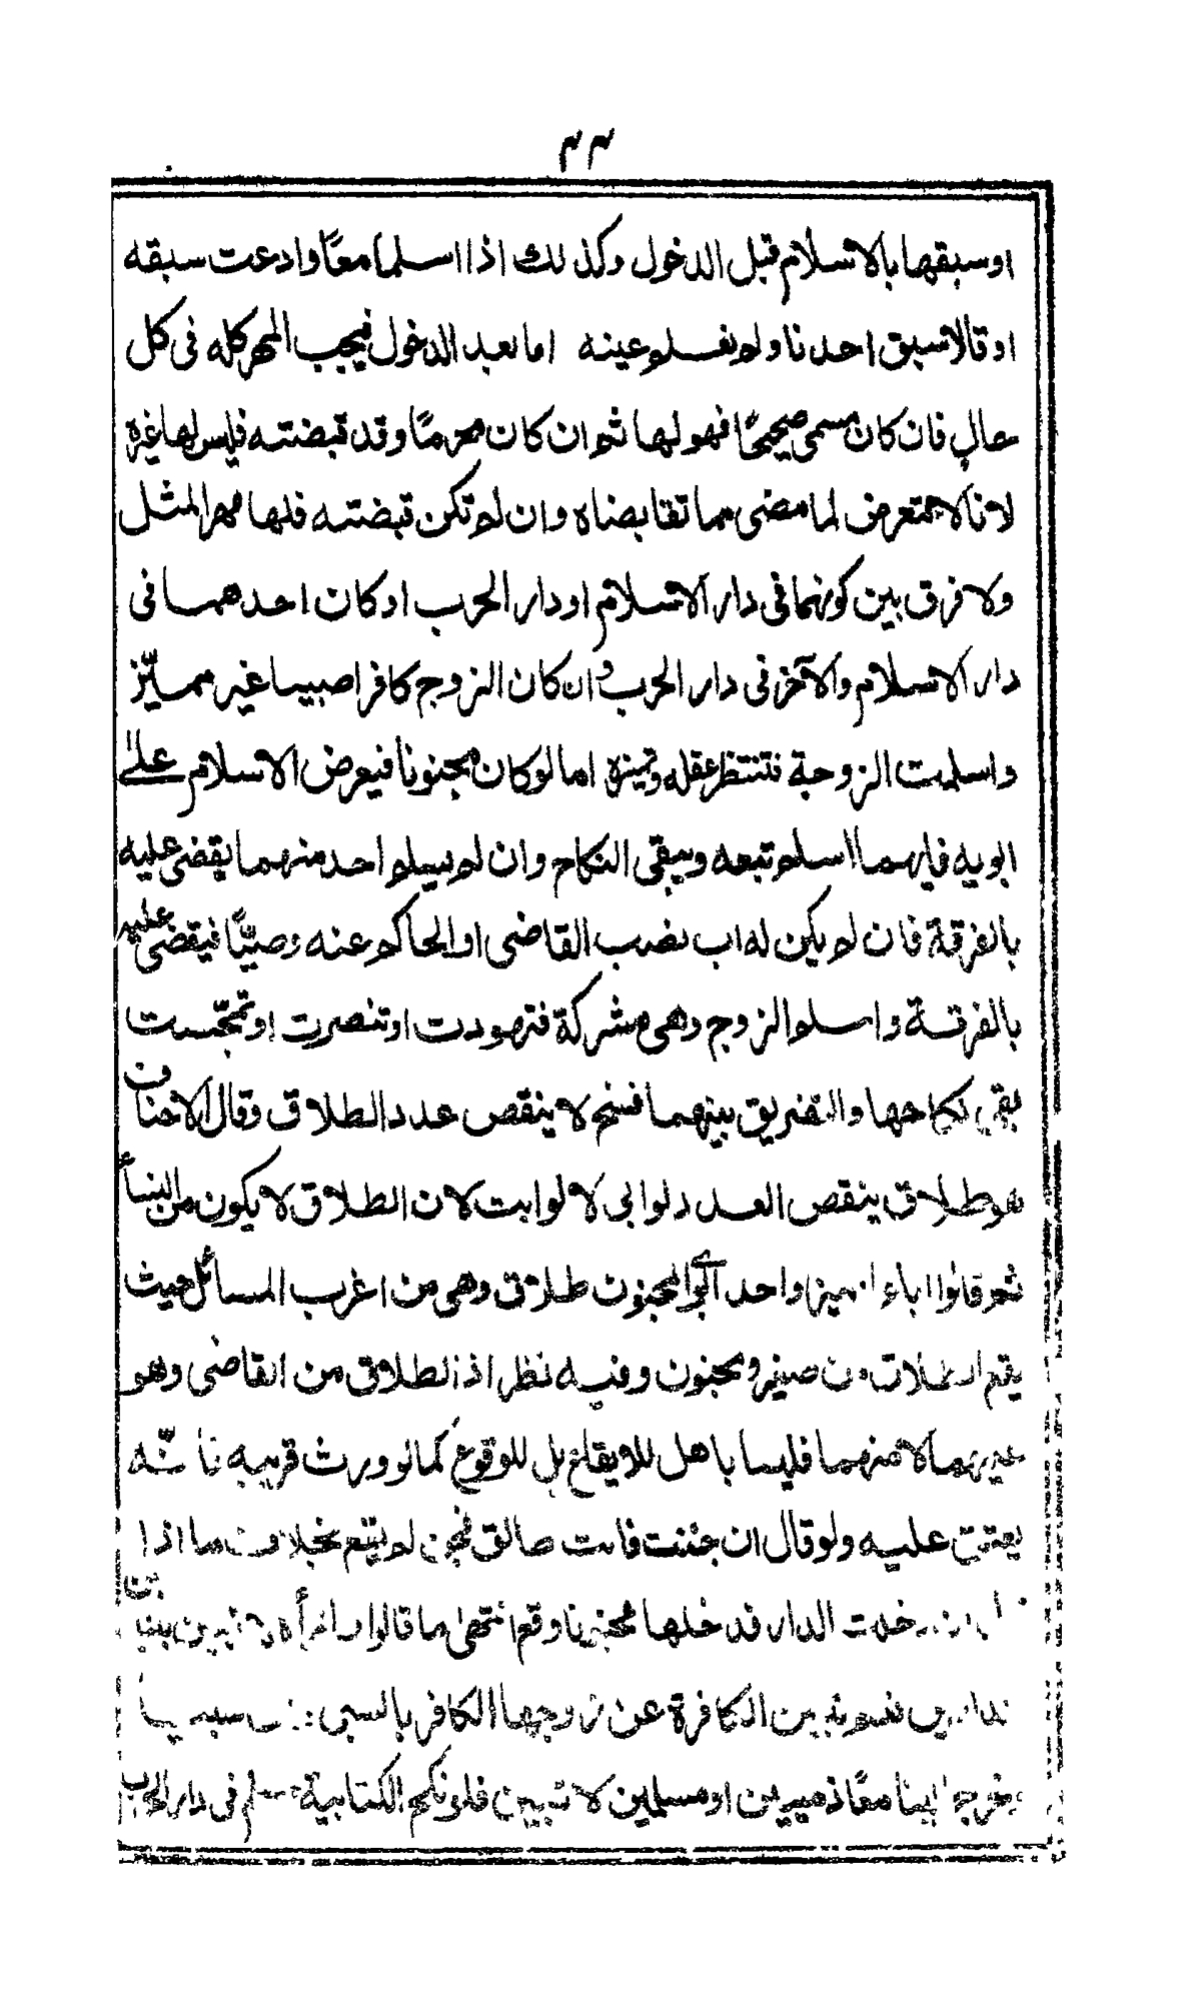 ٣٣
او سبقها بالاسلام قبل الدخول وكذلك اذا اسلما معًا وادعت سبقه
او قالا سبق احدنا ولم نعلم عينه اما بعد الدخول فيجب المهر كله فى كل
حال فان كان مسمى صحيحًا فهو لها ثم ان كان محرمًا وقد قبضته فليس لها غيره
لانا لا نتعرض لما مضى مما تقابضاه وان لم تكن قبضته فلها مهر المثل
ولا فرق بين كونهما فى دار الاسلام او دار الحرب او كان احدهما فى
دار الاسلام والآخر فى دار الحرب وان كان الزوج كافرا صبيا غير مميّز
واسلمت الزوجة فتنتظر عقله وتميزه اما لو كان مجنونا فيعرض الاسلام على
ابويه فايهما اسلم تبعه ويبقى النكاح وان لم يسلم احد منهما يقضى عليه
بالفرقة فان لم يكن له اب نصب القاضى او الحاكم عنه وصيًّا فيقضى عليه
بالفرقة واسلم الزوج وهى مشركة فتهودت او تنصرت او تمجّست
بقى نكاحها والتفريق بينهما فسخ لا ينقص عدد الطلاق وقال الاحناف
هو طلاق ينقص العدد لو ابى لا لو ابت لان الطلاق لا يكون من النساء
ثم قالوا اباء المميز واحد ابوى المجنون طلاق وهى من اغرب المسائل حيث
يقع الطلاق من صغير ومجنون وفيه نظر اذ الطلاق من القاضى وهو
عليهما لا منهما فليسا باهل للايقاع بل للوقوع كما لو ورث قريبه فانّه
يعتق عليه ولو قال ان جننت فانت طالق فجن لم يقع بخلاف ما اذا
دخلت الدار فدخلها مجنونا وقع انتهى ما قالوا
بين الكافرة عن زوجها الكافر بالسبى
الينا معًا ذميين او مسلمين لا تبين فلو نكح الكتابية مسلم فى دار الحرب